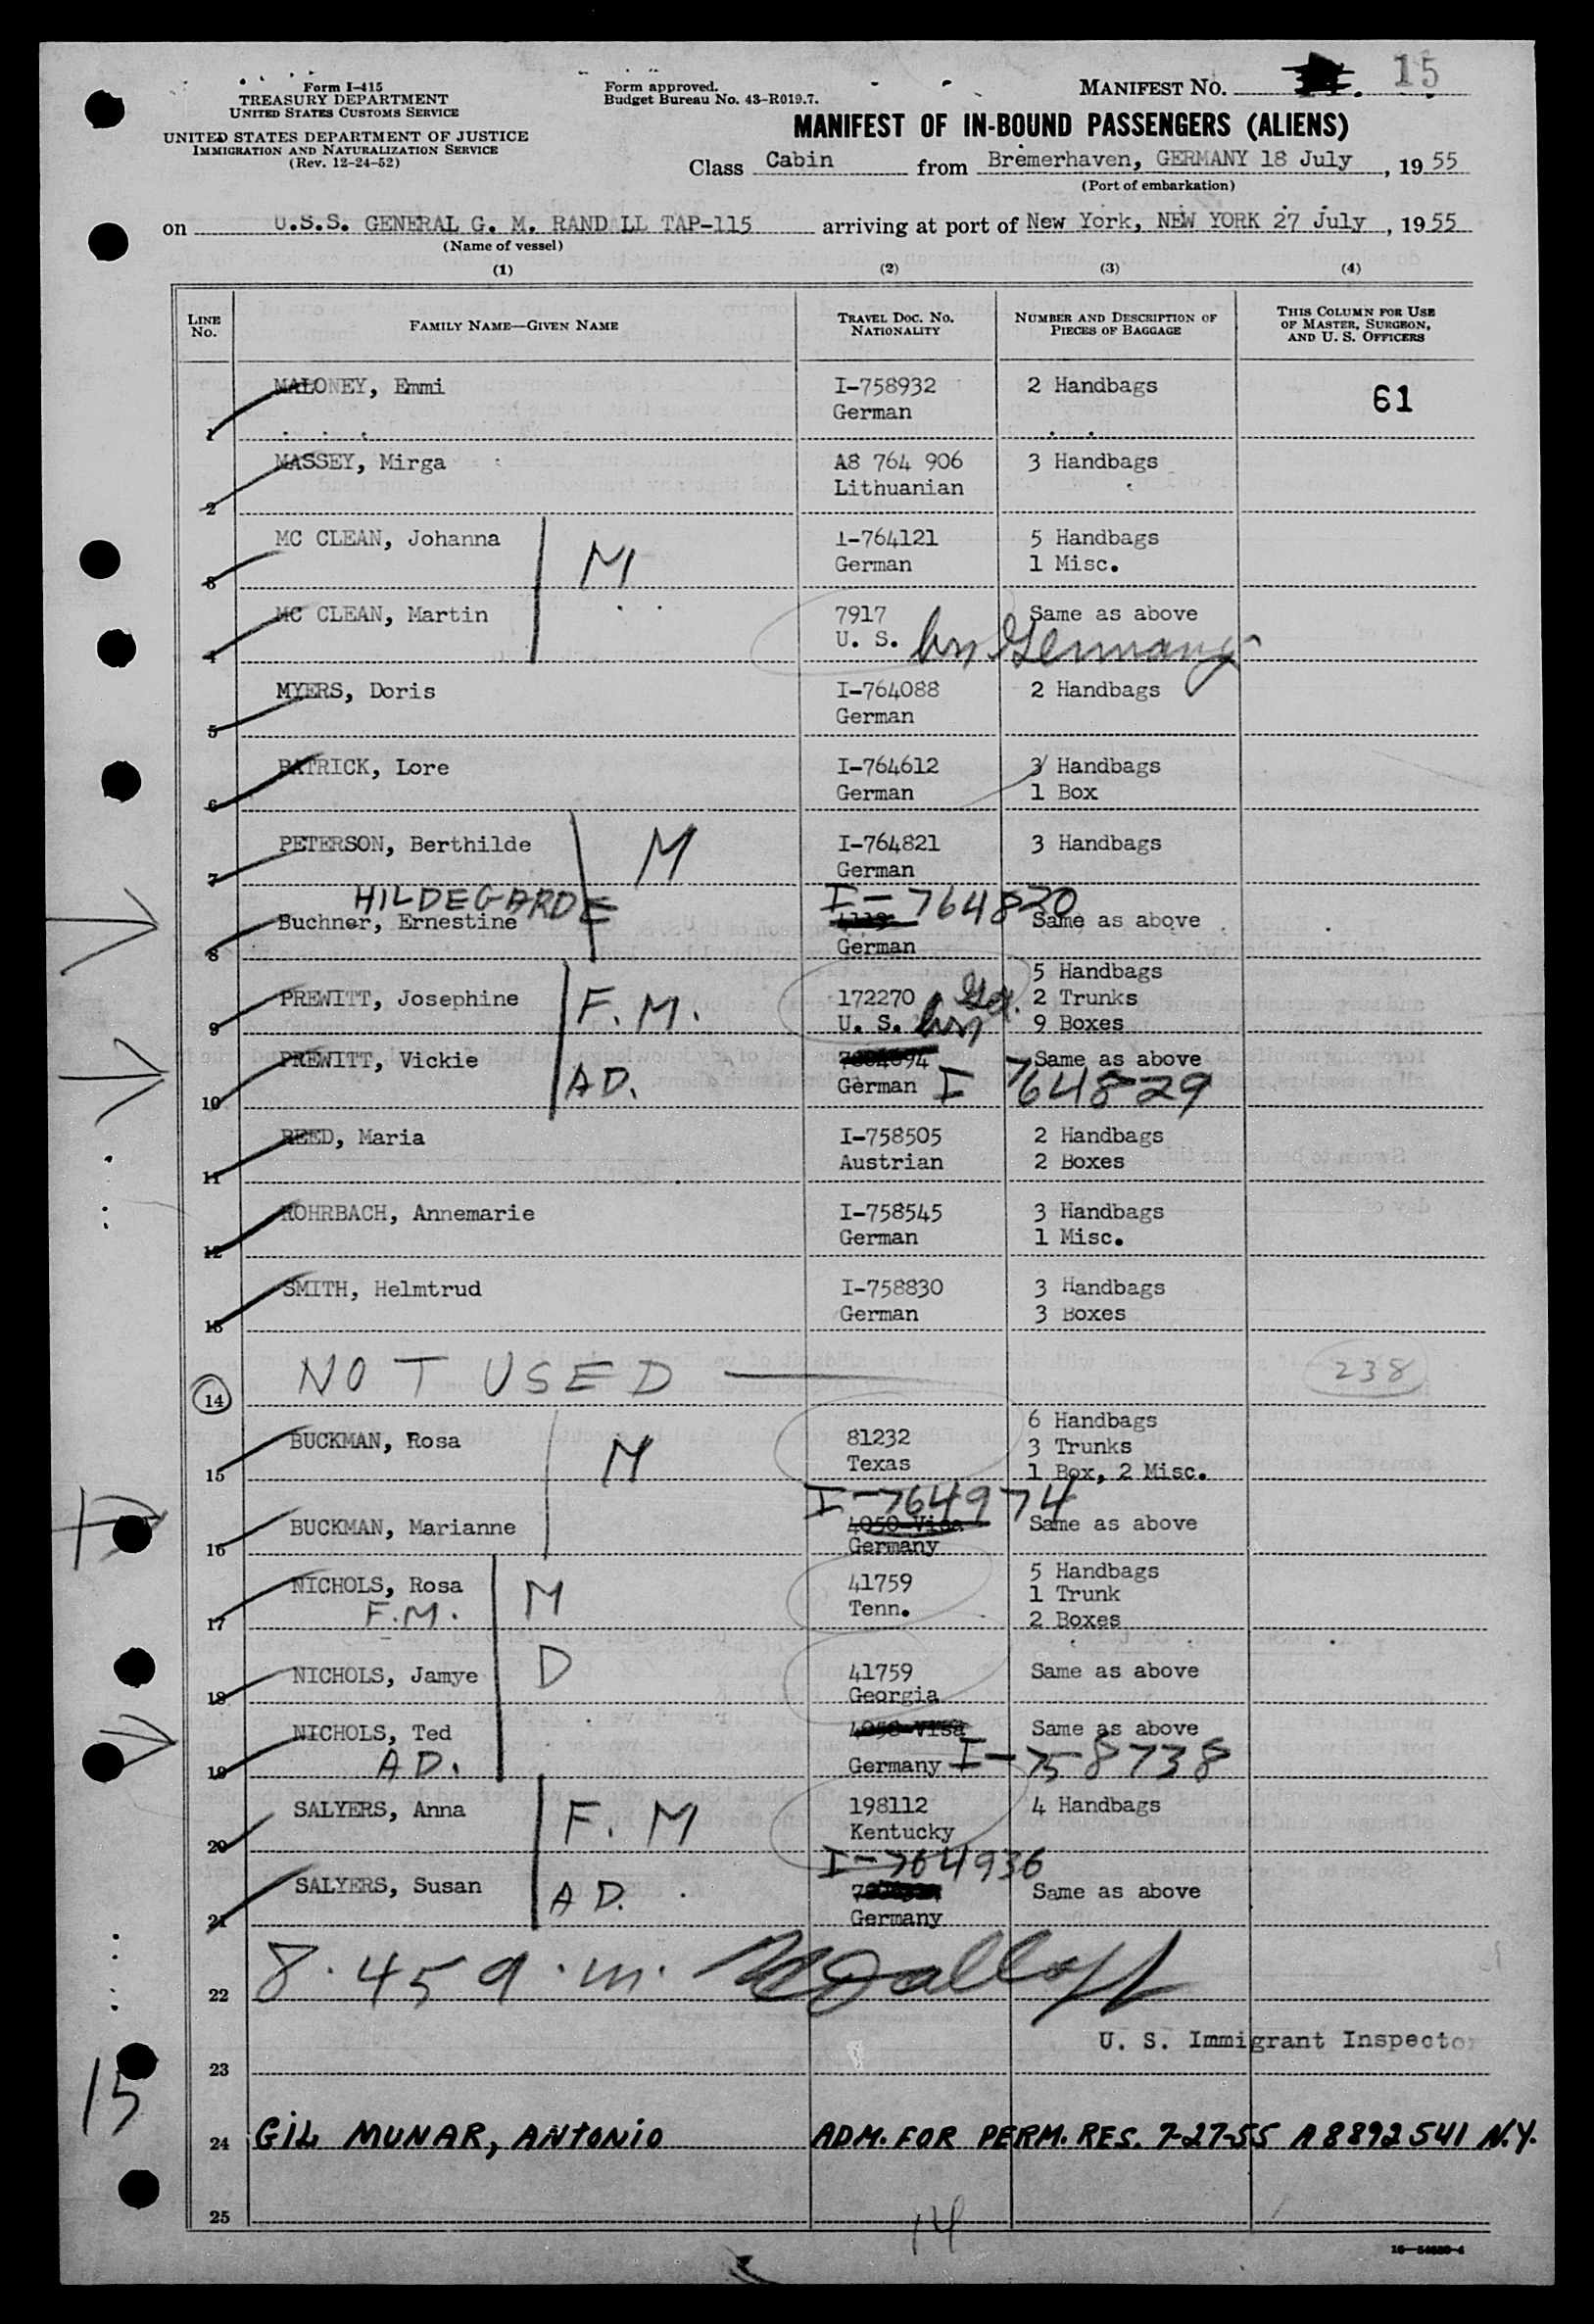 Form I-415
TREASURY DEPARTMENT
UNITED STATES CUSTOMS SERVICE
UNITED STATES DEPARTMENT OF JUSTICE
IMMIGRATION AND NATURALIZATION SERVICE
(Rev. 12-24-52)
Form approved.
Budget Bureau No. 43-R019.7.
MANIFEST NO. 15
MANIFEST OF IN-BOUND PASSENGERS (ALIENS)
Class Cabin from Bremerhaven, GERMANY 18 July, 1955
(Port of embarkation)
on U.S.S. GENERAL G. M. RANDALL TAP-115 arriving at port of New York, NEW YORK 27 July, 1955
(Name of vessel)
(1) (2) (3) (4)
LINE NO. FAMILY NAME—GIVEN NAME TRAVEL DOC. NO. NATIONALITY NUMBER AND DESCRIPTION OF PIECES OF BAGGAGE THIS COLUMN FOR USE OF MASTER, SURGEON, AND U. S. OFFICERS
MALONEY, Emmi I-758932 2 Handbags 61
1 German
MASSEY, Mirga A8 764 906 3 Handbags
2 Lithuanian
MC CLEAN, Johanna M I-764121 5 Handbags
3 German 1 Misc.
MC CLEAN, Martin 7917 Same as above
4 U. S. brn Germany
MYERS, Doris I-764088 2 Handbags
5 German
PATRICK, Lore I-764612 3 Handbags
6 German 1 Box
PETERSON, Berthilde M I-764821 3 Handbags
7 German
HILDEGARDE I-764820
Buchner, Ernestine Same as above
8 German
5 Handbags
PREWITT, Josephine F.M. 172270 2 Trunks
9 U. S. brn 9 Boxes
PREWITT, Vickie 7884694 Same as above
10 AD. German I 764829
REED, Maria I-758505 2 Handbags
11 Austrian 2 Boxes
ROHRBACH, Annemarie I-758545 3 Handbags
12 German 1 Misc.
SMITH, Helmtrud I-758830 3 Handbags
13 German 3 Boxes
14 NOT USED 238
6 Handbags
BUCKMAN, Rosa M 81232 3 Trunks
15 Texas 1 Box, 2 Misc.
I-764974
BUCKMAN, Marianne 4050-Visa Same as above
16 Germany
5 Handbags
NICHOLS, Rosa M 41759 1 Trunk
17 F.M. Tenn. 2 Boxes
NICHOLS, Jamye D 41759 Same as above
18 Georgia
NICHOLS, Ted 4058-Visa Same as above
19 AD. Germany I-758738
SALYERS, Anna F.M 198112 4 Handbags
20 Kentucky
I-764936
SALYERS, Susan AD. Same as above
21 Germany
22 8.45 a.m.
U. S. Immigrant Inspector
23
24 GIL MUNAR, ANTONIO ADM. FOR PERM. RES. 7-27-55 A8892541 N.Y.
25
15
14